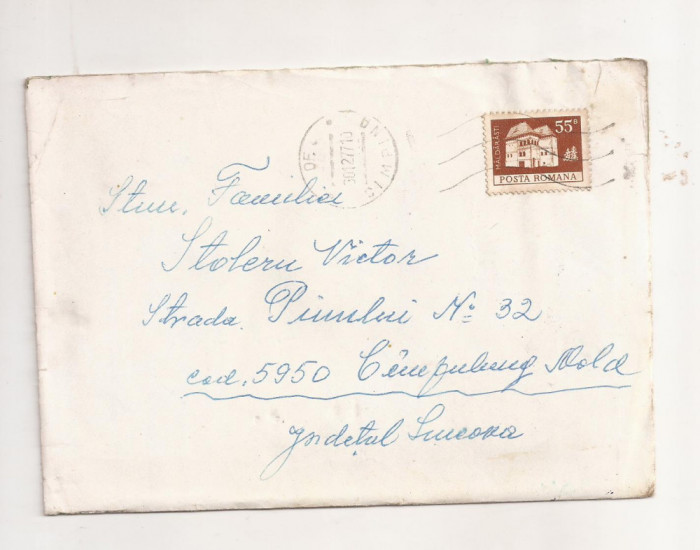 55B
MĂLDĂRĂȘTI
POSTA ROMANA
Stim. Familiei
Stoleru Victor
Strada Pinului No 32
cod. 5950 Cîmpulung Mold
județul Suceava